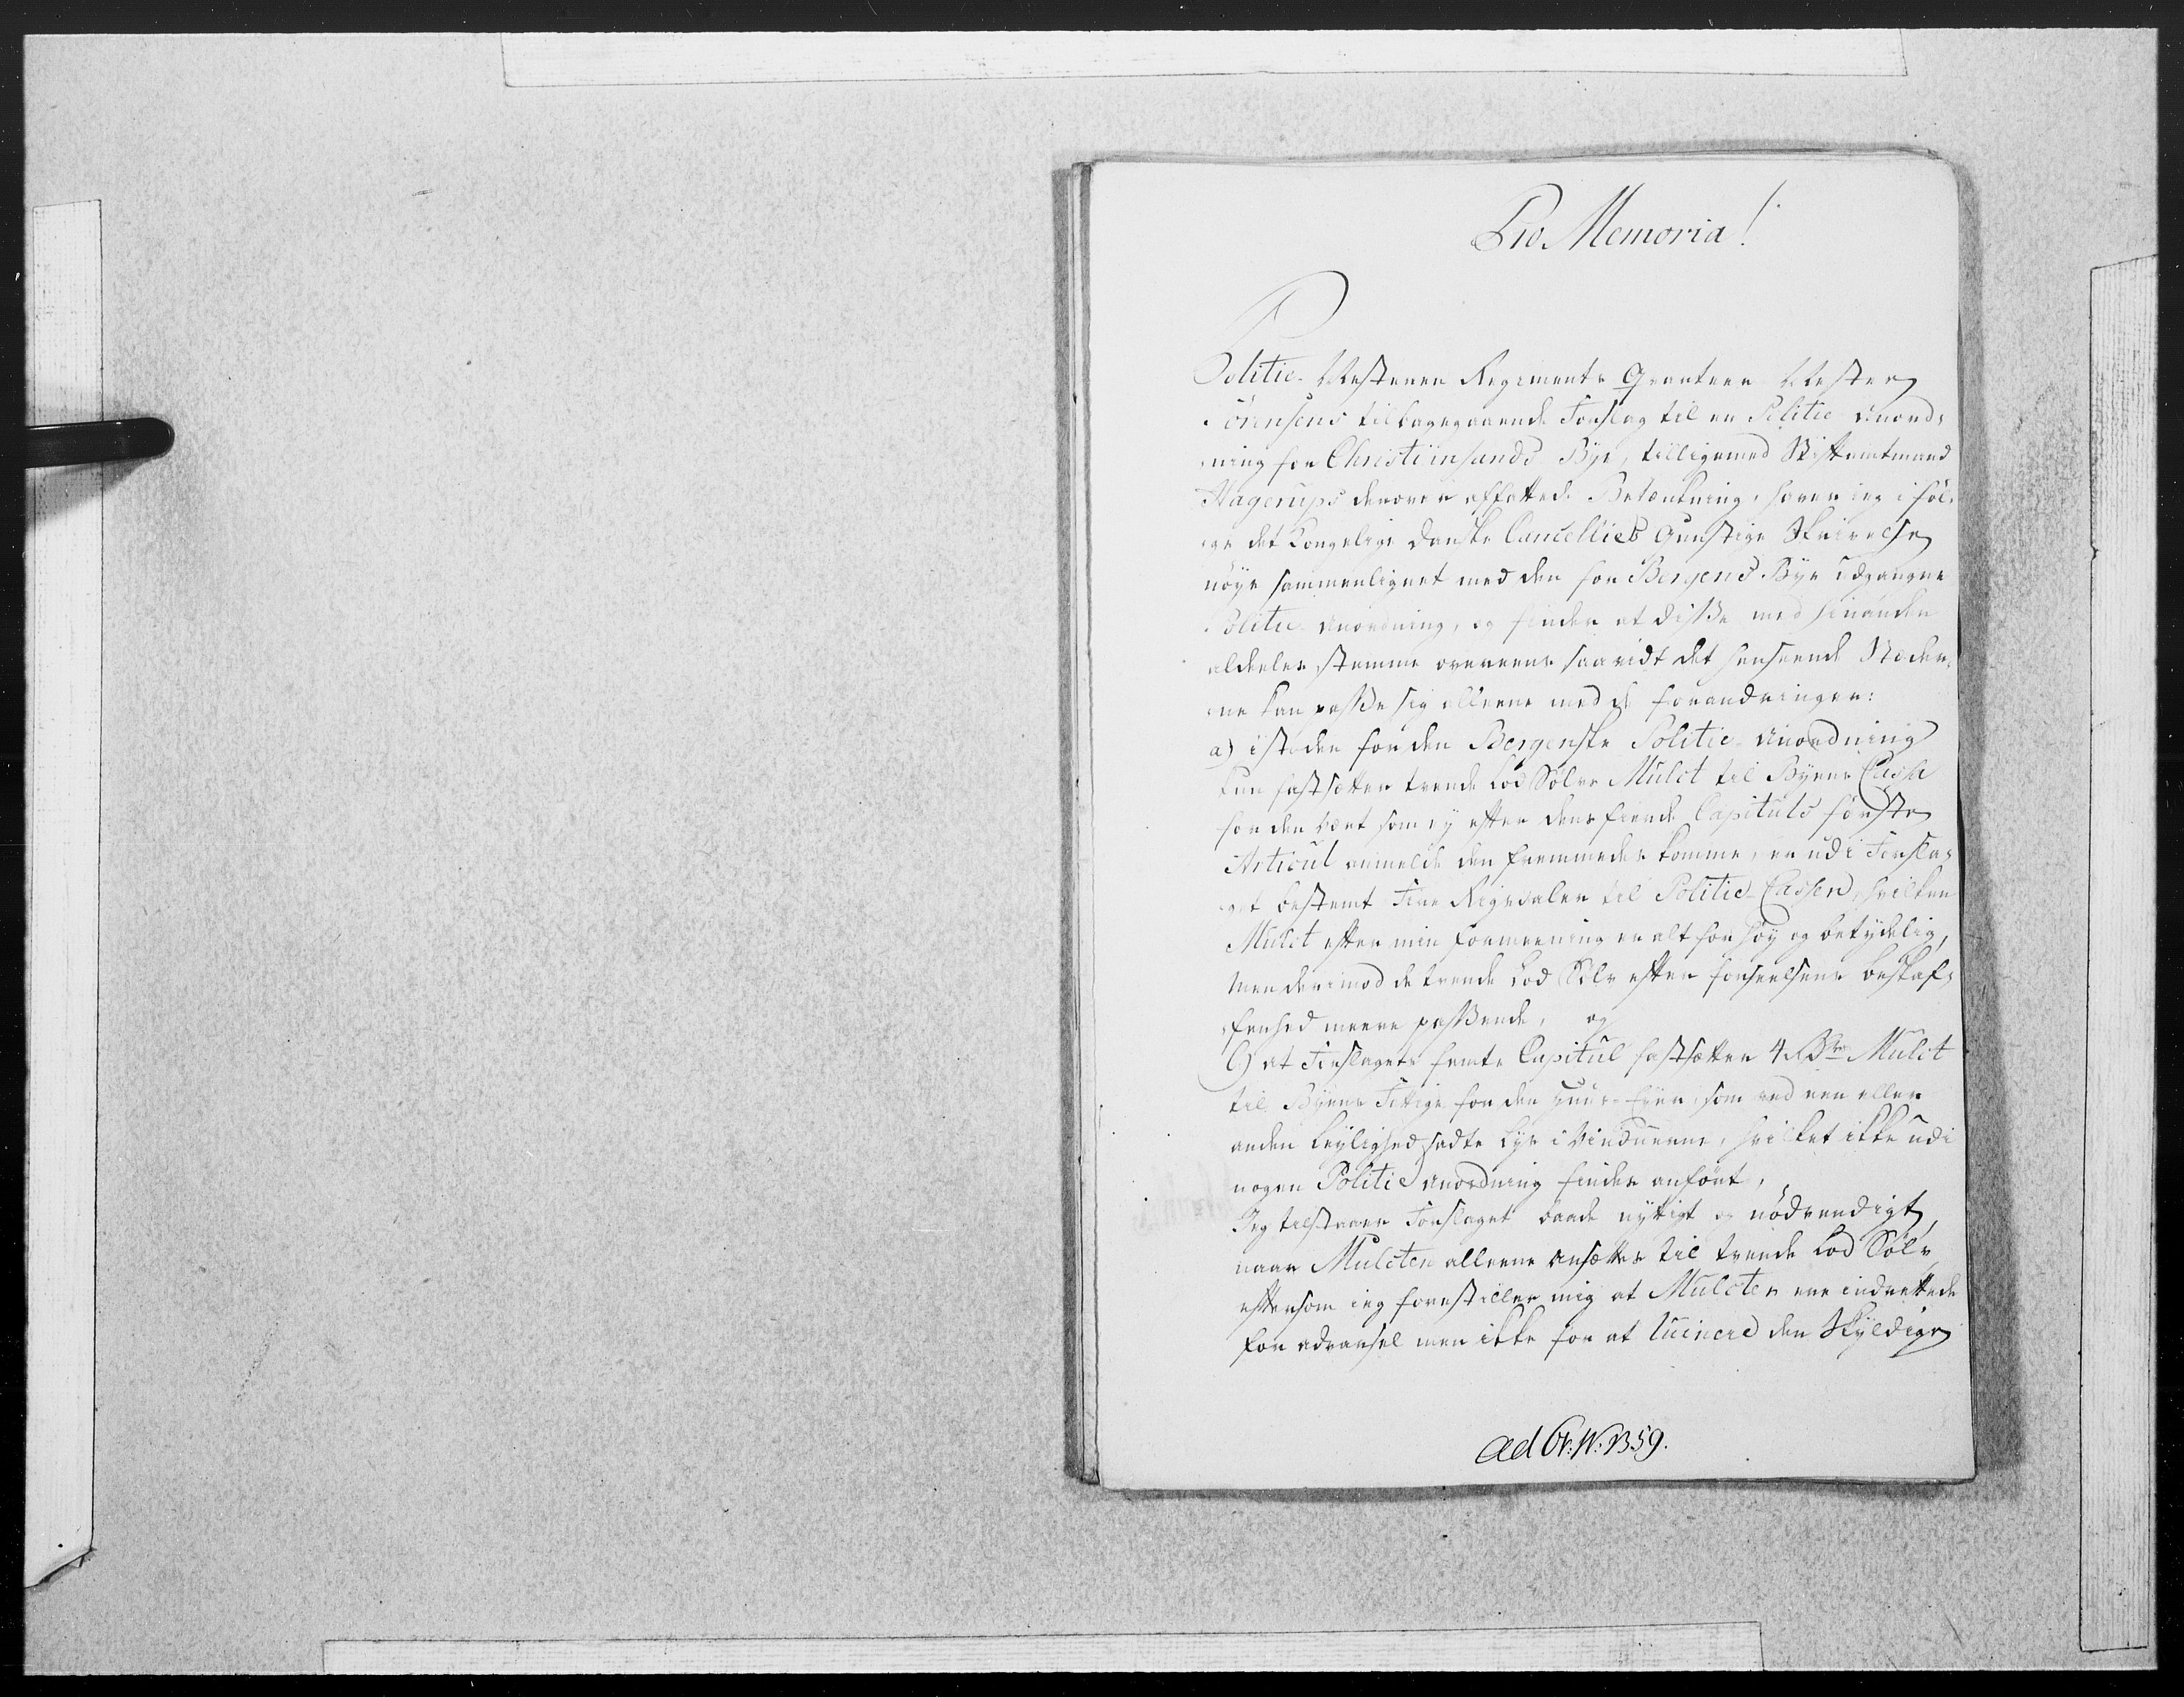 Pro Memoria!
Politie-Mesteren Regiments Qvarteer Mester
Sörensens tilbagegaaende Forslag til en Politie Anord-
ning for Christiansands Bye, tilligemed Stiftamtmand
Hagerups derover affattede Betænkning, haver jeg i föl-
ge det Kongelige Danske Cancellies Gunstige Skrivelse
nöye sammenlignet med den for Bergens Bye udgangne
Politie Anordning, og finder at disse med hinanden
aldeles stemme overeens saavidt det henseende Stæder-
ne kan passe sig alleene med de forandringer:
a) istæden for den Bergenske Politie-Anordning
kun fastsætter trende Lod Sölv Mulct til Byens Cassa
for den Vært som ey efter dens fierde Capituls förste
Articul anmelde den fremmedes komme, er udi Forsla-
get bestemt Fire Rigsdaler til Politie Cassen, hvilken
Mulct efter min formeening er alt for höy og betydelig,
men derimod de trende Lod Sölv efter forseelsens beskaf-
fenhed meere passende, og
b) at Forslagets femte Capitul fastsætter 4 Rdr Mulct
til Byens Fattige for den Huus-Eyer, som ved een eller
anden leylighed sadte Lys i Vinduerne, hvilket ikke udi
nogen Politie Anordning findes anfört,
Jeg tilstaaer Forslaget baade nyttigt og nödvendigt,
naar Mulcten alleene ansættes til trende Lod Sölv,
eftersom jeg forestiller mig at Mulcter ere indrettede
for advarsel men ikke for at ruinere den Skyldige
Ad Nr: 1359.